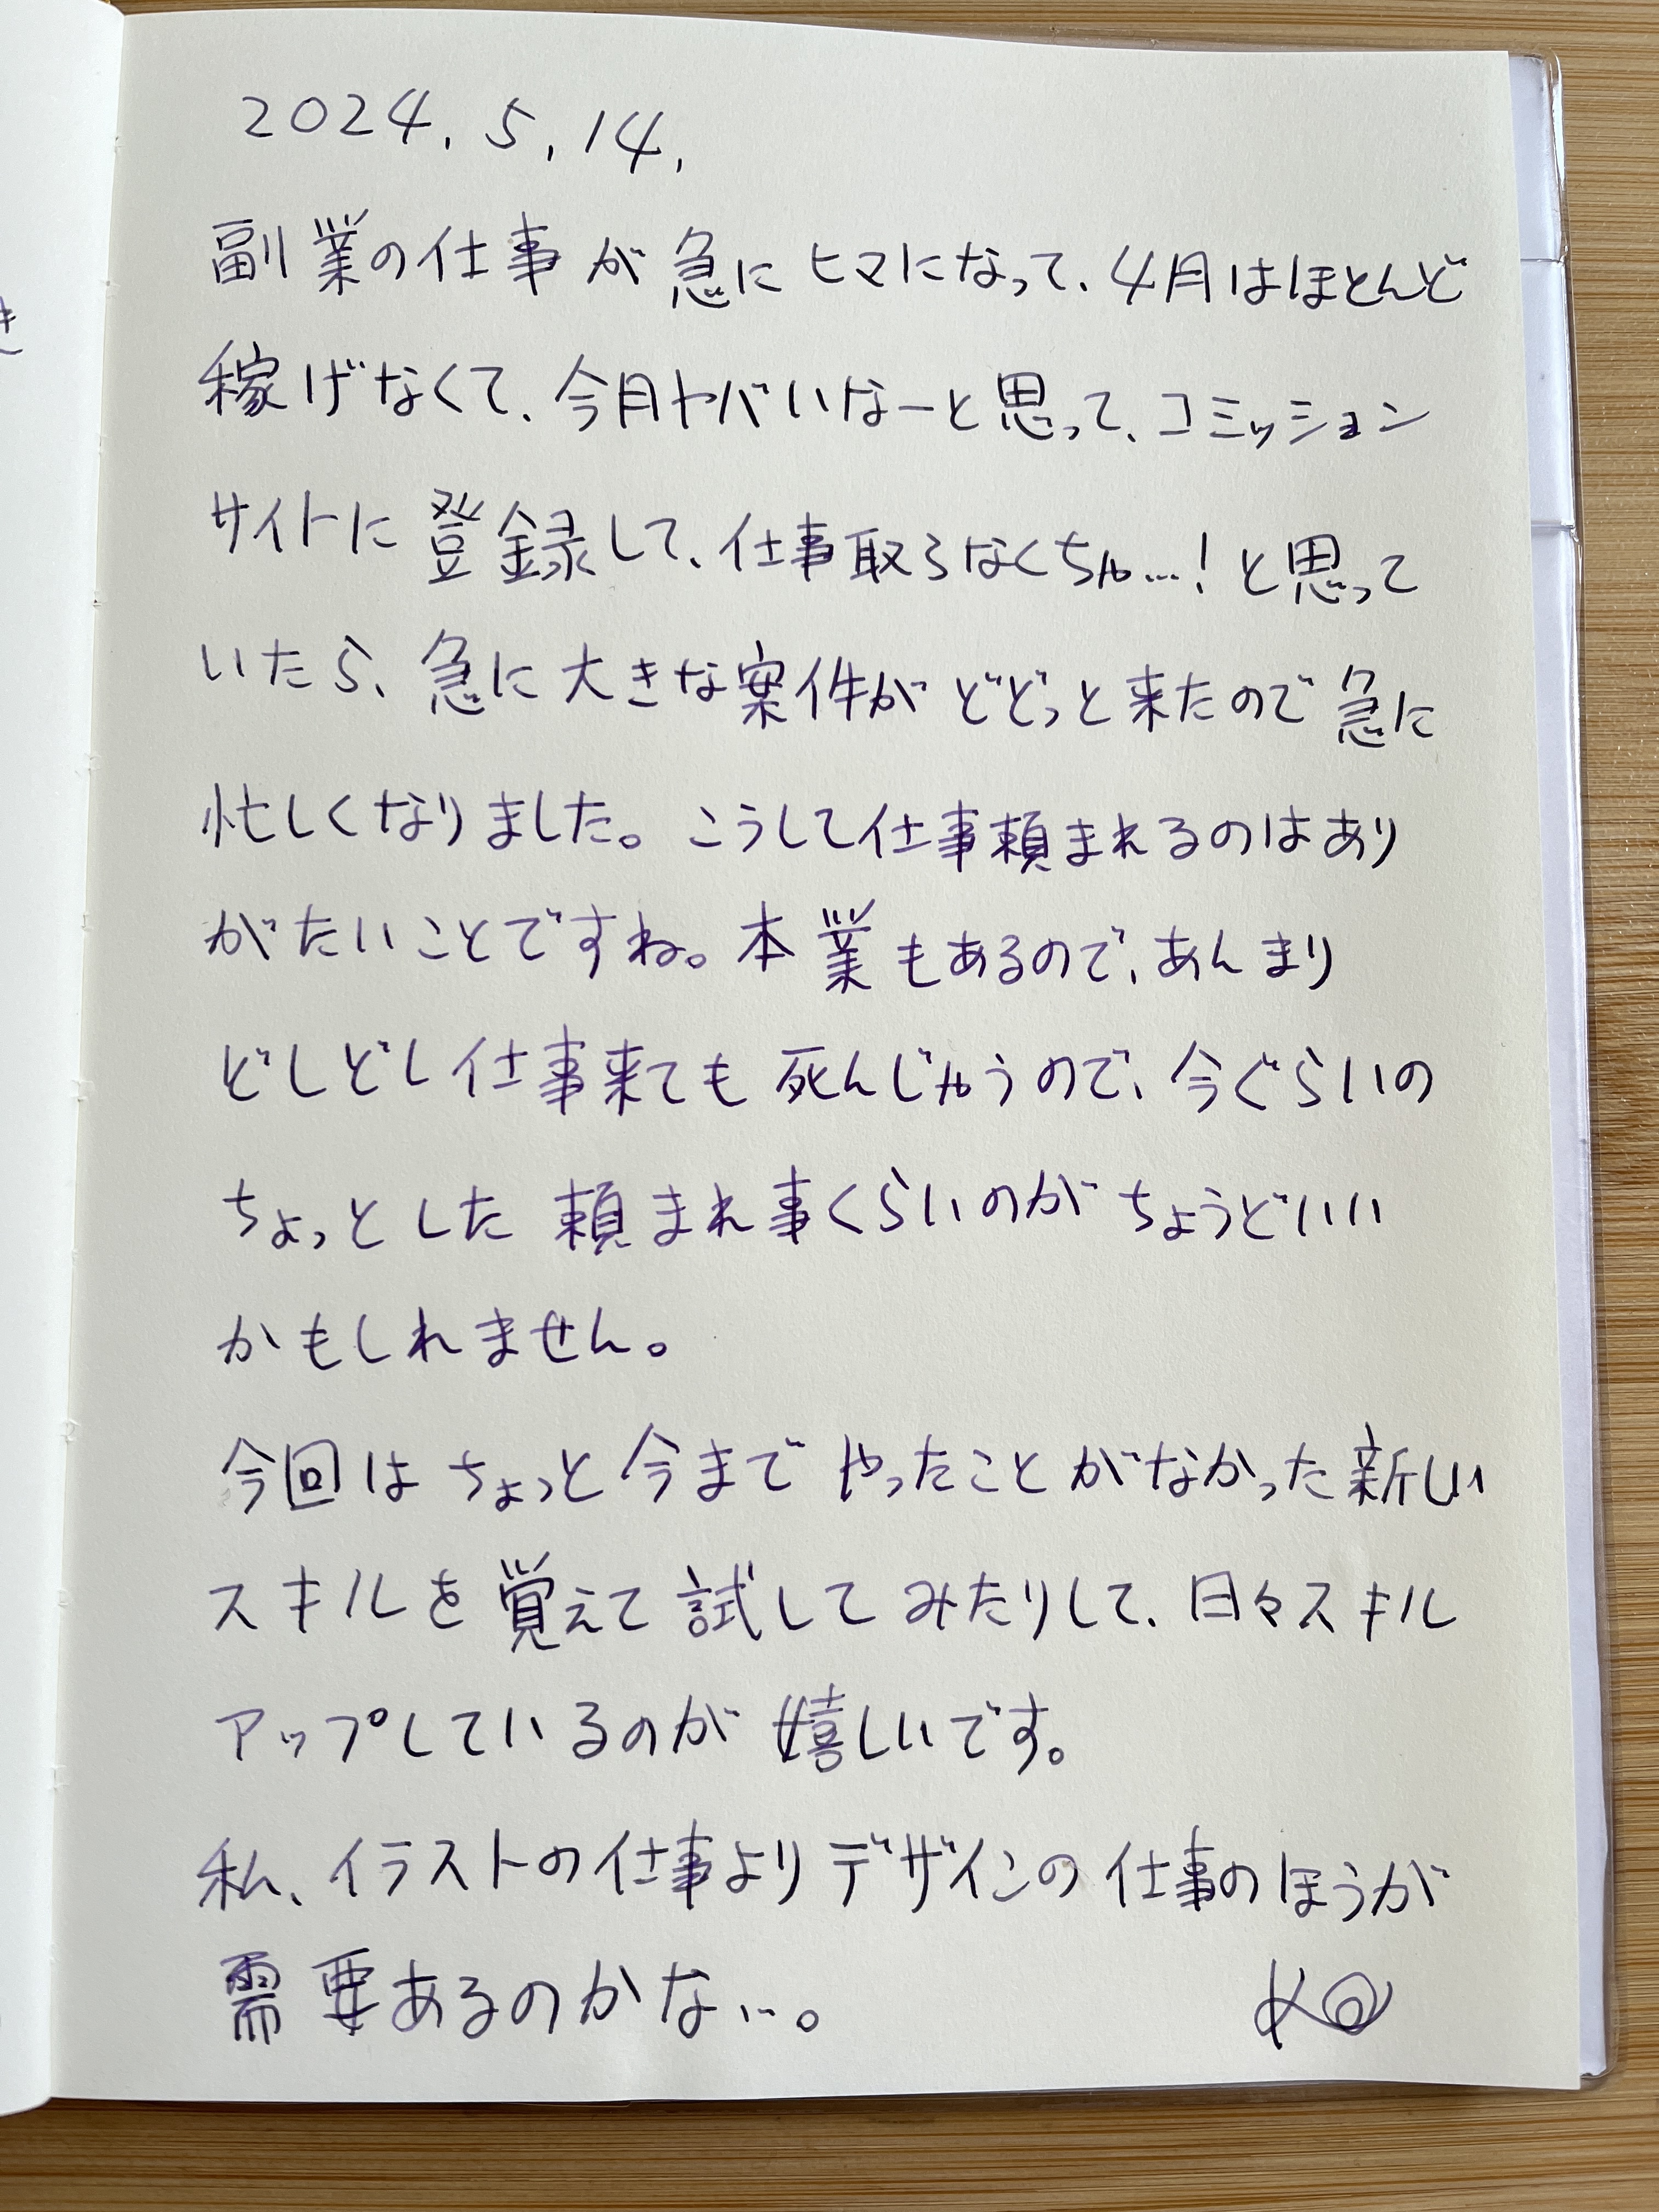 2024.5.14.
副業の仕事が急にヒマになって、4月はほとんど
稼げなくて、今月ヤバいなーと思って、コミッション
サイトに登録して、仕事取らなくちゃ…!と思って
いたら、急に大きな案件がどどっと来たので急に
忙しくなりました。こうして仕事頼まれるのはあり
がたいことですね。本業もあるので、あんまり
どしどし仕事来ても死んじゃうので、今ぐらいの
ちょっとした頼まれ事くらいのがちょうどいい
かもしれません。
今回はちょっと今までやったことがなかった新しい
スキルを覚えて試してみたりして、日々スキル
アップしているのが嬉しいです。
私、イラストの仕事よりデザインの仕事のほうが
需要あるのかな…。